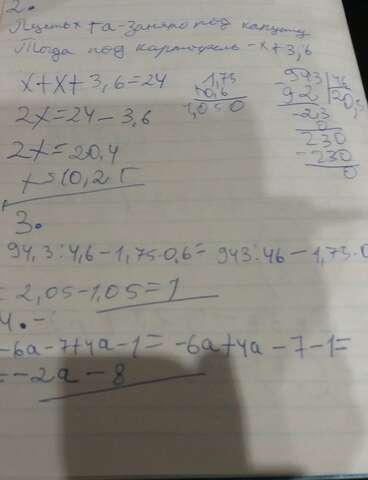 2.
Пусть x га-занято под капусту
Тогда под картофель-x+3,6
x+x+3,6=24
2x=24-3,6
2x=20,4
x=10,2
1,75
0,6
1,050
943 46
92 20,5
-23
0
230
-230
0
3.
94,3:4,6-1,75·0,6= 943:46-1,75·0
= 2,05-1,05=1
4.
-6a-7+4a-1= -6a+4a-7-1=
=-2a-8